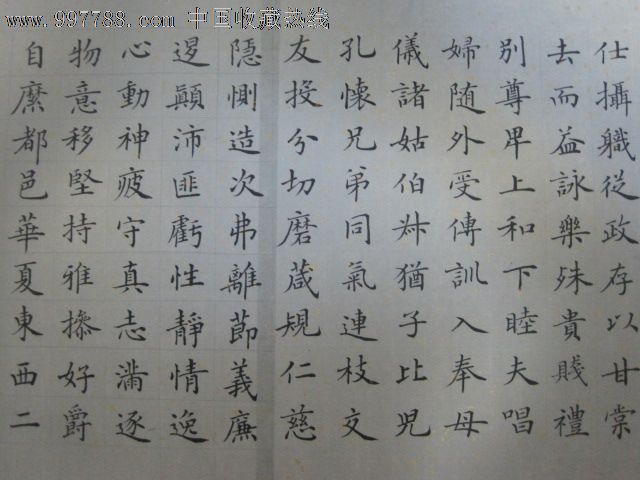 www.997788.com 中国收藏热线
仕攝職從政存以甘棠
去而益詠樂殊貴賤禮
別尊卑上和下睦夫唱
婦随外受傳訓入奉母
儀諸姑伯叔猶子比兒
孔懷兄弟同氣連枝交
友投分切磨葴規仁慈
隱惻造次弗離節義廉
退顛沛匪虧性靜情逸
心動神疲守真志滿逐
物意移堅持雅操好爵
自縻都邑華夏東西二